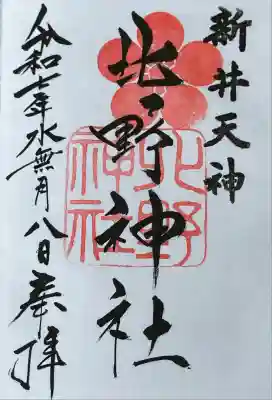 新井天神
北野神社
令和七年水無月八日奉拝
北野
神社